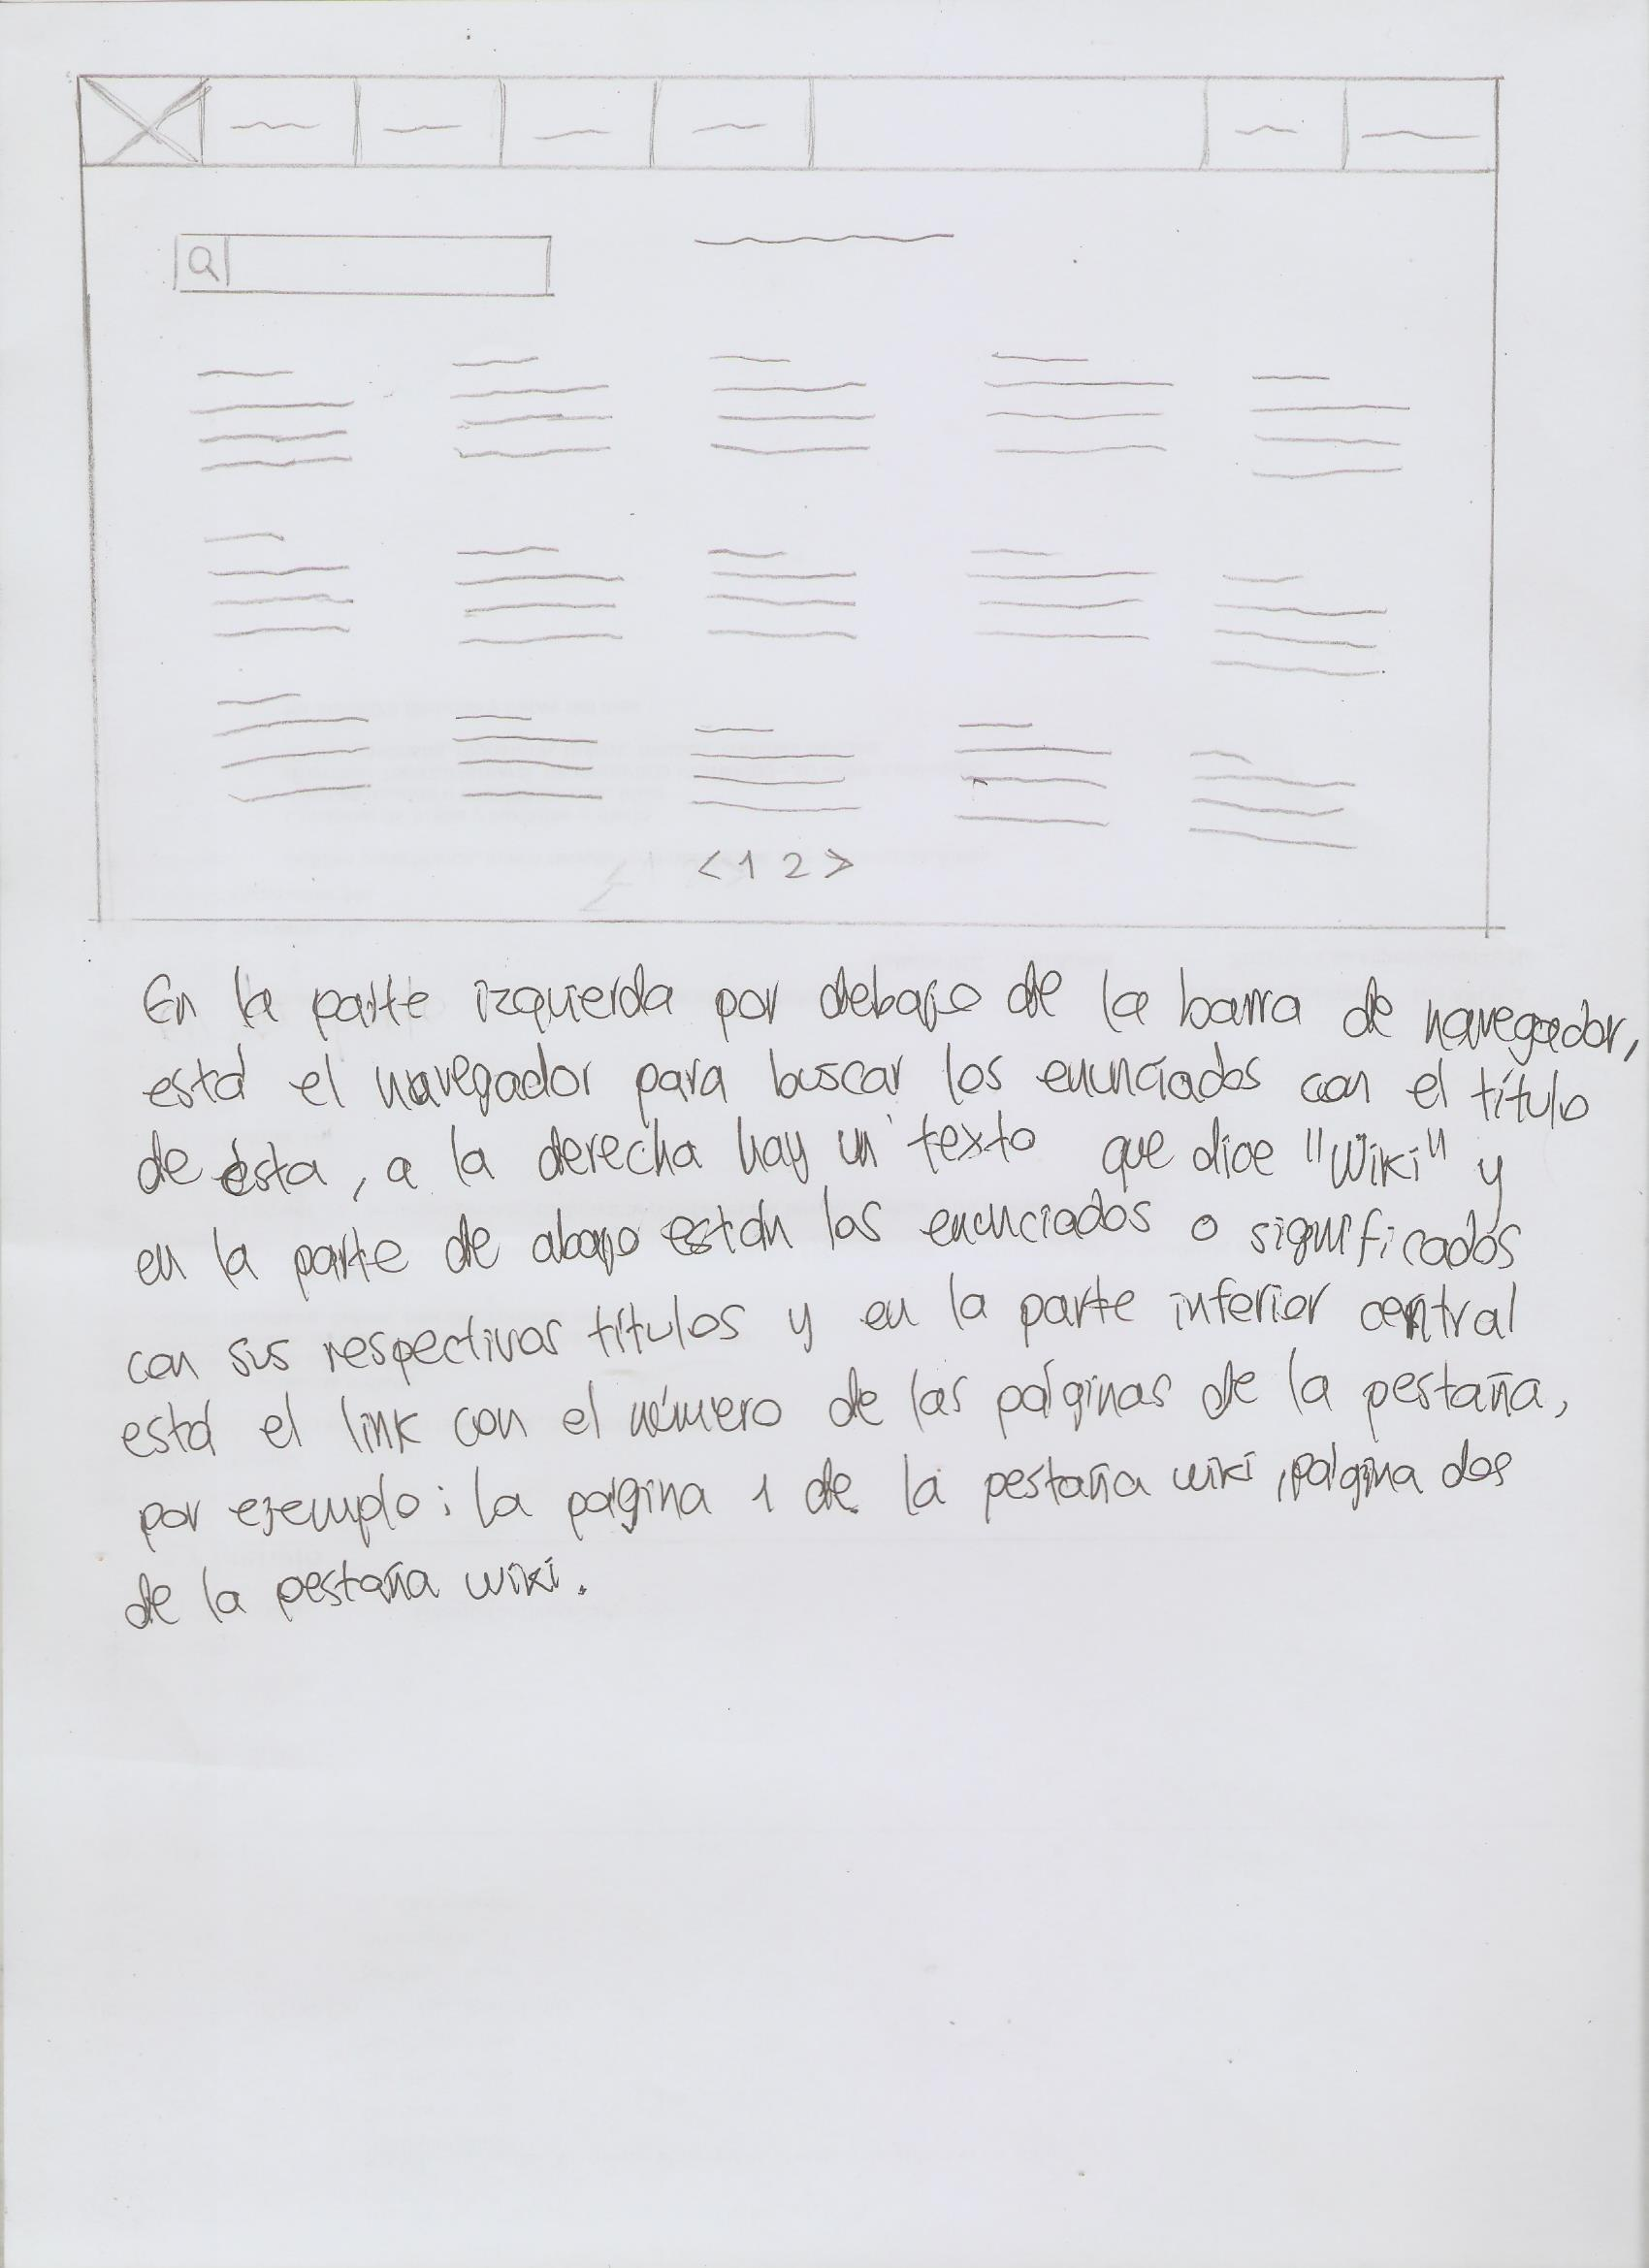 < 1 2 >
En la parte izquierda por debajo de la barra de navegador,
está el navegador para buscar los enunciados con el título
de ésta, a la derecha hay un texto que dice "Wiki" y
en la parte de abajo están los enunciados o significados
con sus respectivos títulos y en la parte inferior central
está el link con el número de las páginas de la pestaña,
por ejemplo: la página 1 de la pestaña wiki, página dos
de la pestaña wiki.